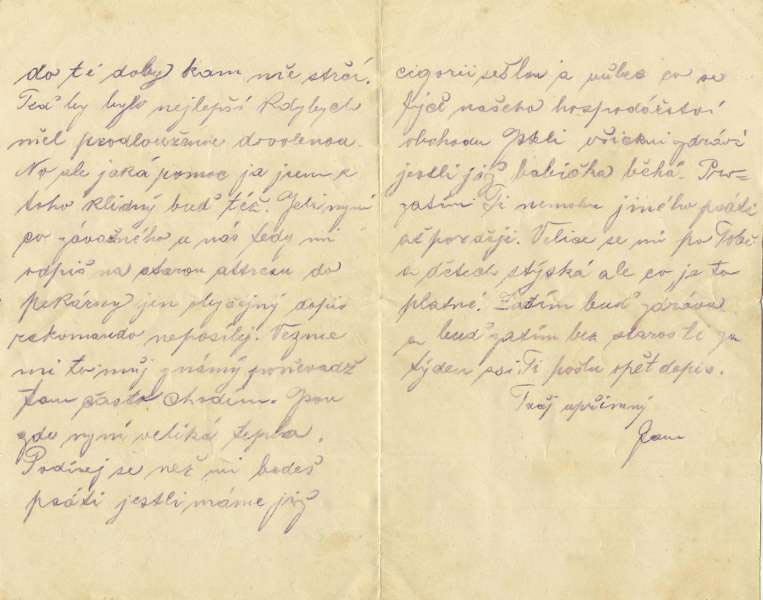 do té doby kam nře strčí.
Teď by bylo nejlepší kdybych
měl prodlouženou dovolenou.
No ale jaká pomoc ja jsem k
toho klidný buď též. Jestli nyní
co závažného u nás tedy mi
odpiš na starou atresu do
pekárny jen obyčejný dopis
rekomando neposílej. Vezme
mi to můj známý poněvadž
tam často chodím. Jsou
zde nyní veliká tepla.
Podívej se než mi budeš
psáti jestli máme již
cigorii sešlou a vůbec co se
týče našeho hospodářství
obchodu Jstli všickni zdrávi
jestli již babička běhá. Prozatím
Ti nemohu jiného psáti
až pozdějí. Velice se mi po Tobě
a dětech stýská ale co je to
platné. Zatím buď zdráva
a buď zatím bez starosti za
týden asi Ti pošlu spět dopis.
Tvůj upřímný
Jan